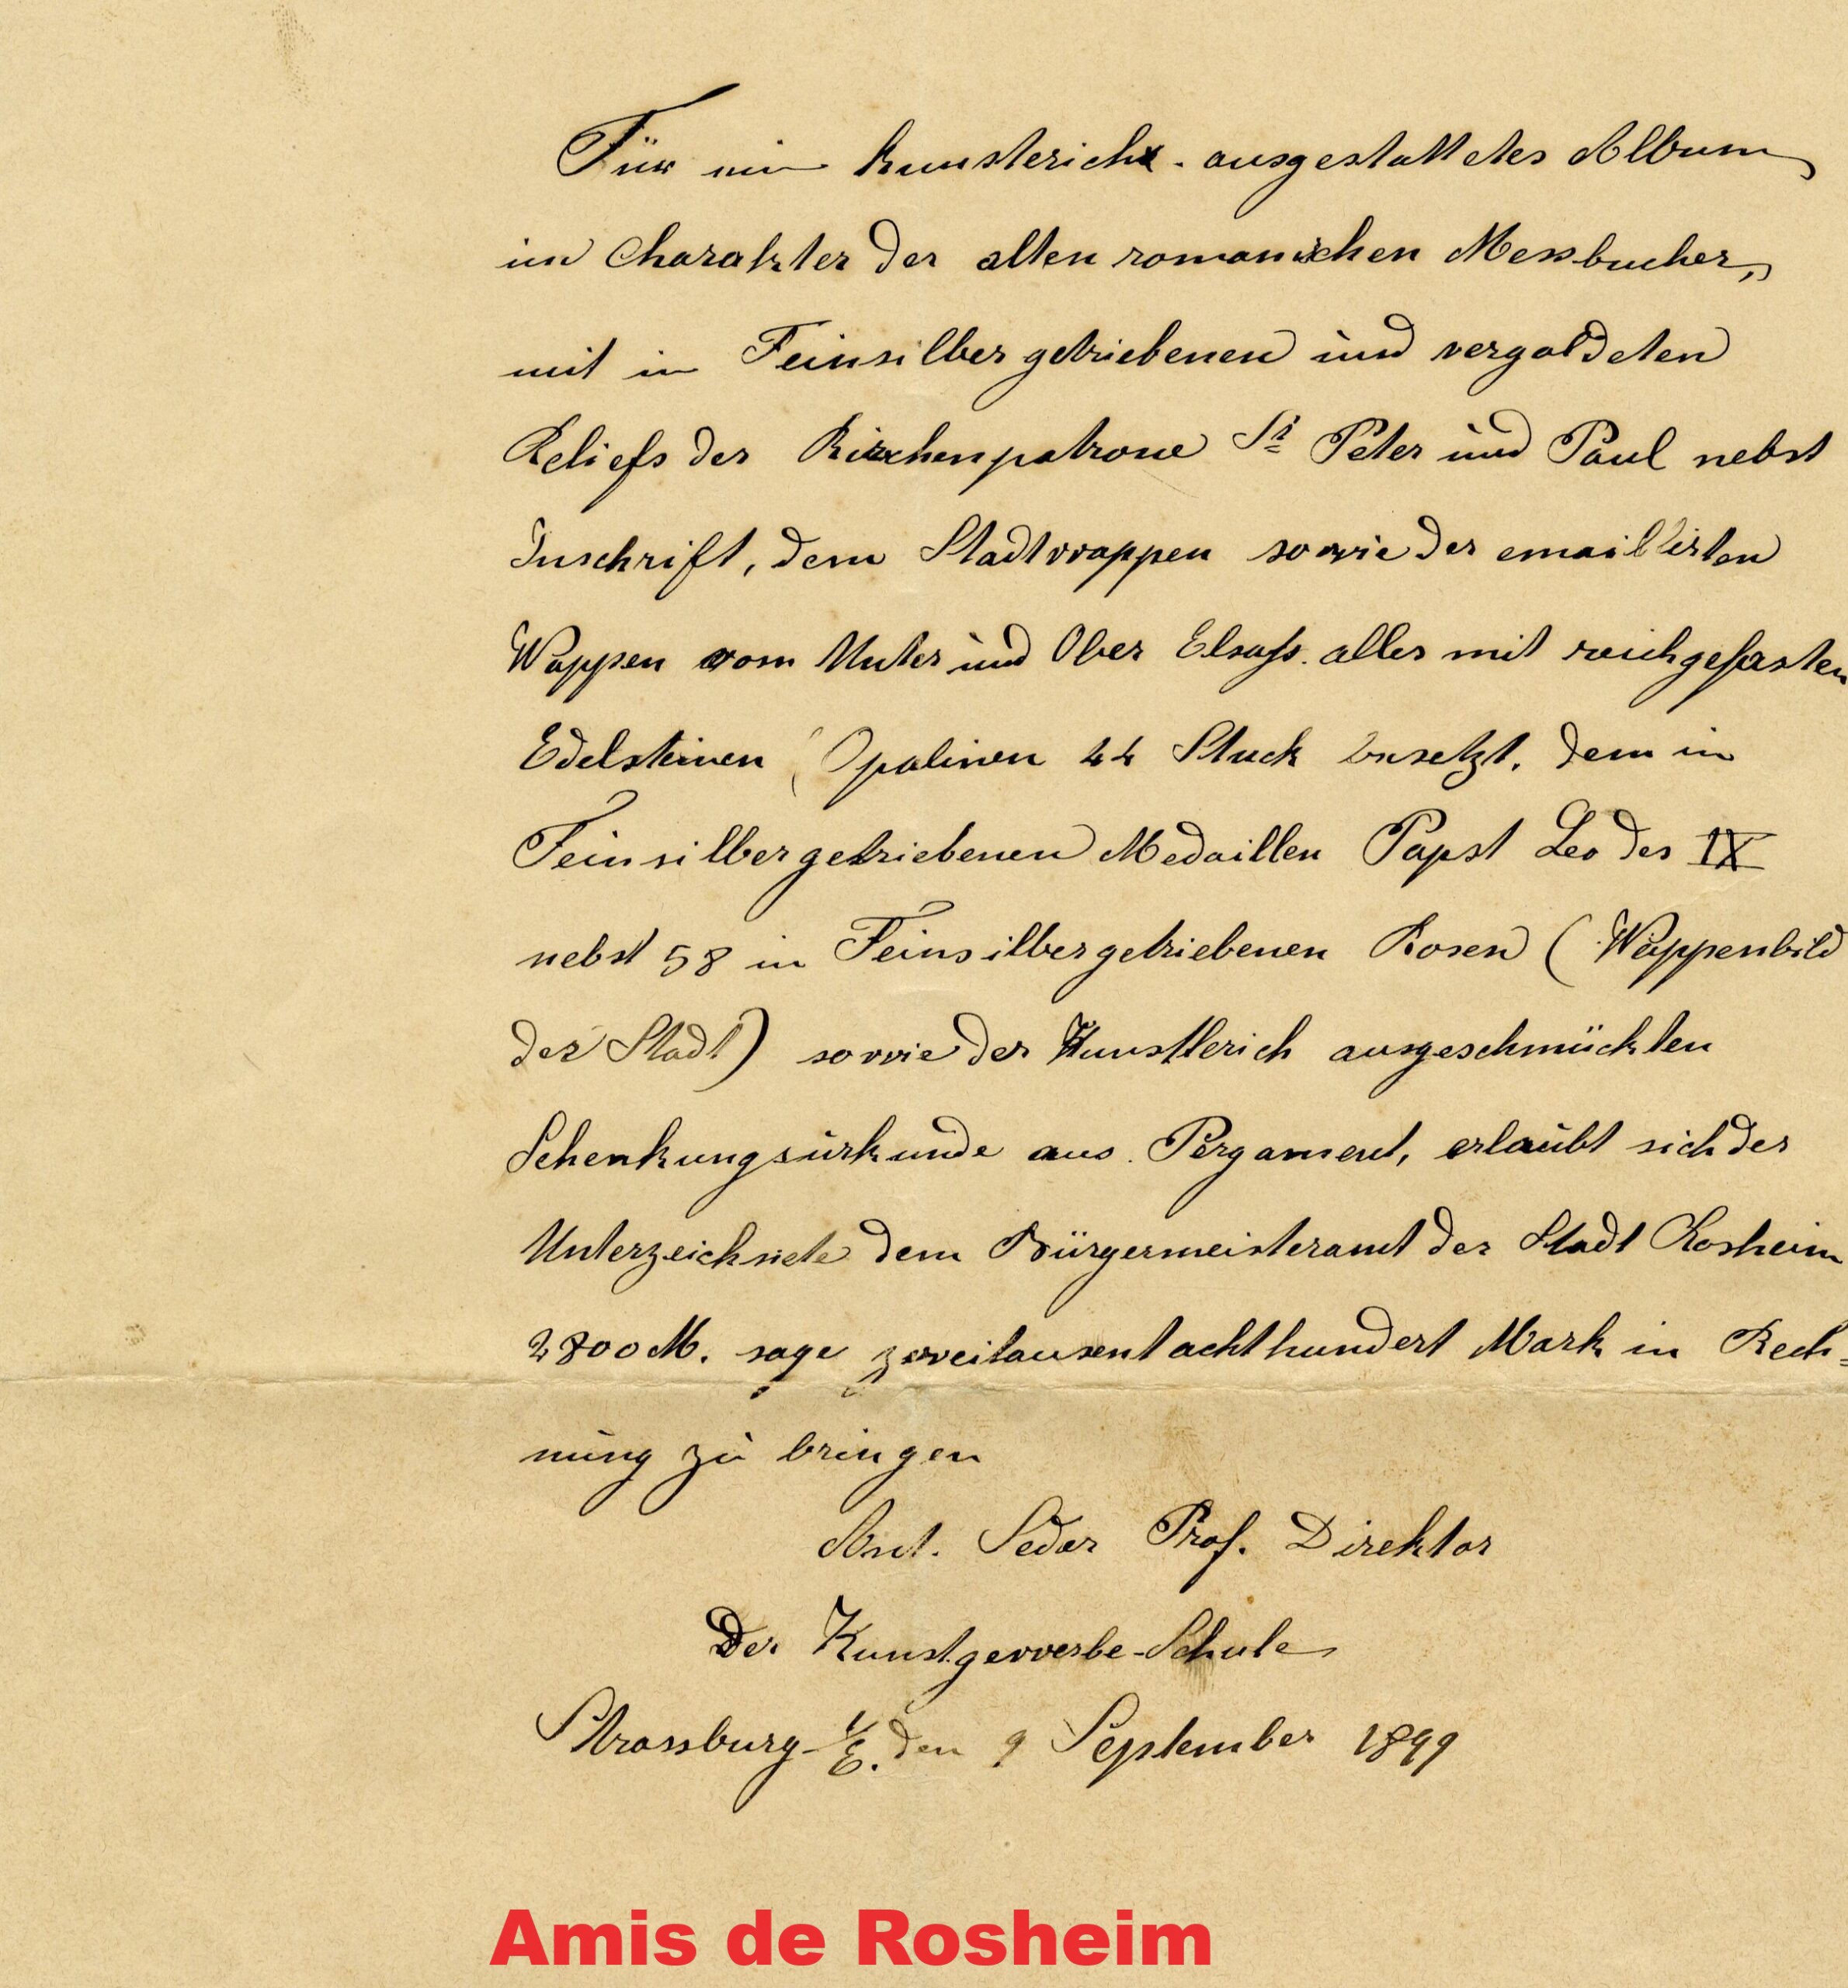 Für ein Kunsterich ausgestattetes Album
im Charakter der alten romanischen Messbucher,
mit in Feinsilber getriebenen und vergoldeten
Reliefs der Kirchenpatrone St Peter und Paul nebst
Inschrift, dem Stadtwappen sowie der emaillirten
Wappen vom Unter und Ober Elsass. alles mit reichgefassten
Edelsteinen (Opalinen 44 Stuck besetzt, dem in
Feinsilber getriebenen Medaillen Papst Leo des IX
nebst 58 in Feinsilber getriebenen Rosen (Wappenbild
der Stadt) sowie der Kunstlerich ausgeschmückten
Schenkungsurkunde aus Pergament, erlaubt sich der
Unterzeichnete dem Bürgermeisteramt der Stadt Rosheim
2800 M. sage zweitausent achthundert Mark in Rech=
nung zu bringen
Ant. Seder Prof. Direktor
Der Kunstgewerbe-Schule
Strassburg i/E. den 9 September 1899
Amis de Rosheim